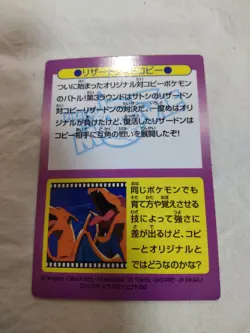 ついに始まったオリジナル対コピーポケモン
のバトル!第3ラウンドはサトシのリザードン
対コピーリザードンの対決だ。一度めはオリ
ジナルが負けたけど、復活したリザードンは
コピー相手に互角の戦いを展開したぞ!
同じポケモンでも
育て方や覚えさせる
技によって強さに
差が出るけど、コピ
ーとオリジナルと
ではどうなのかな?